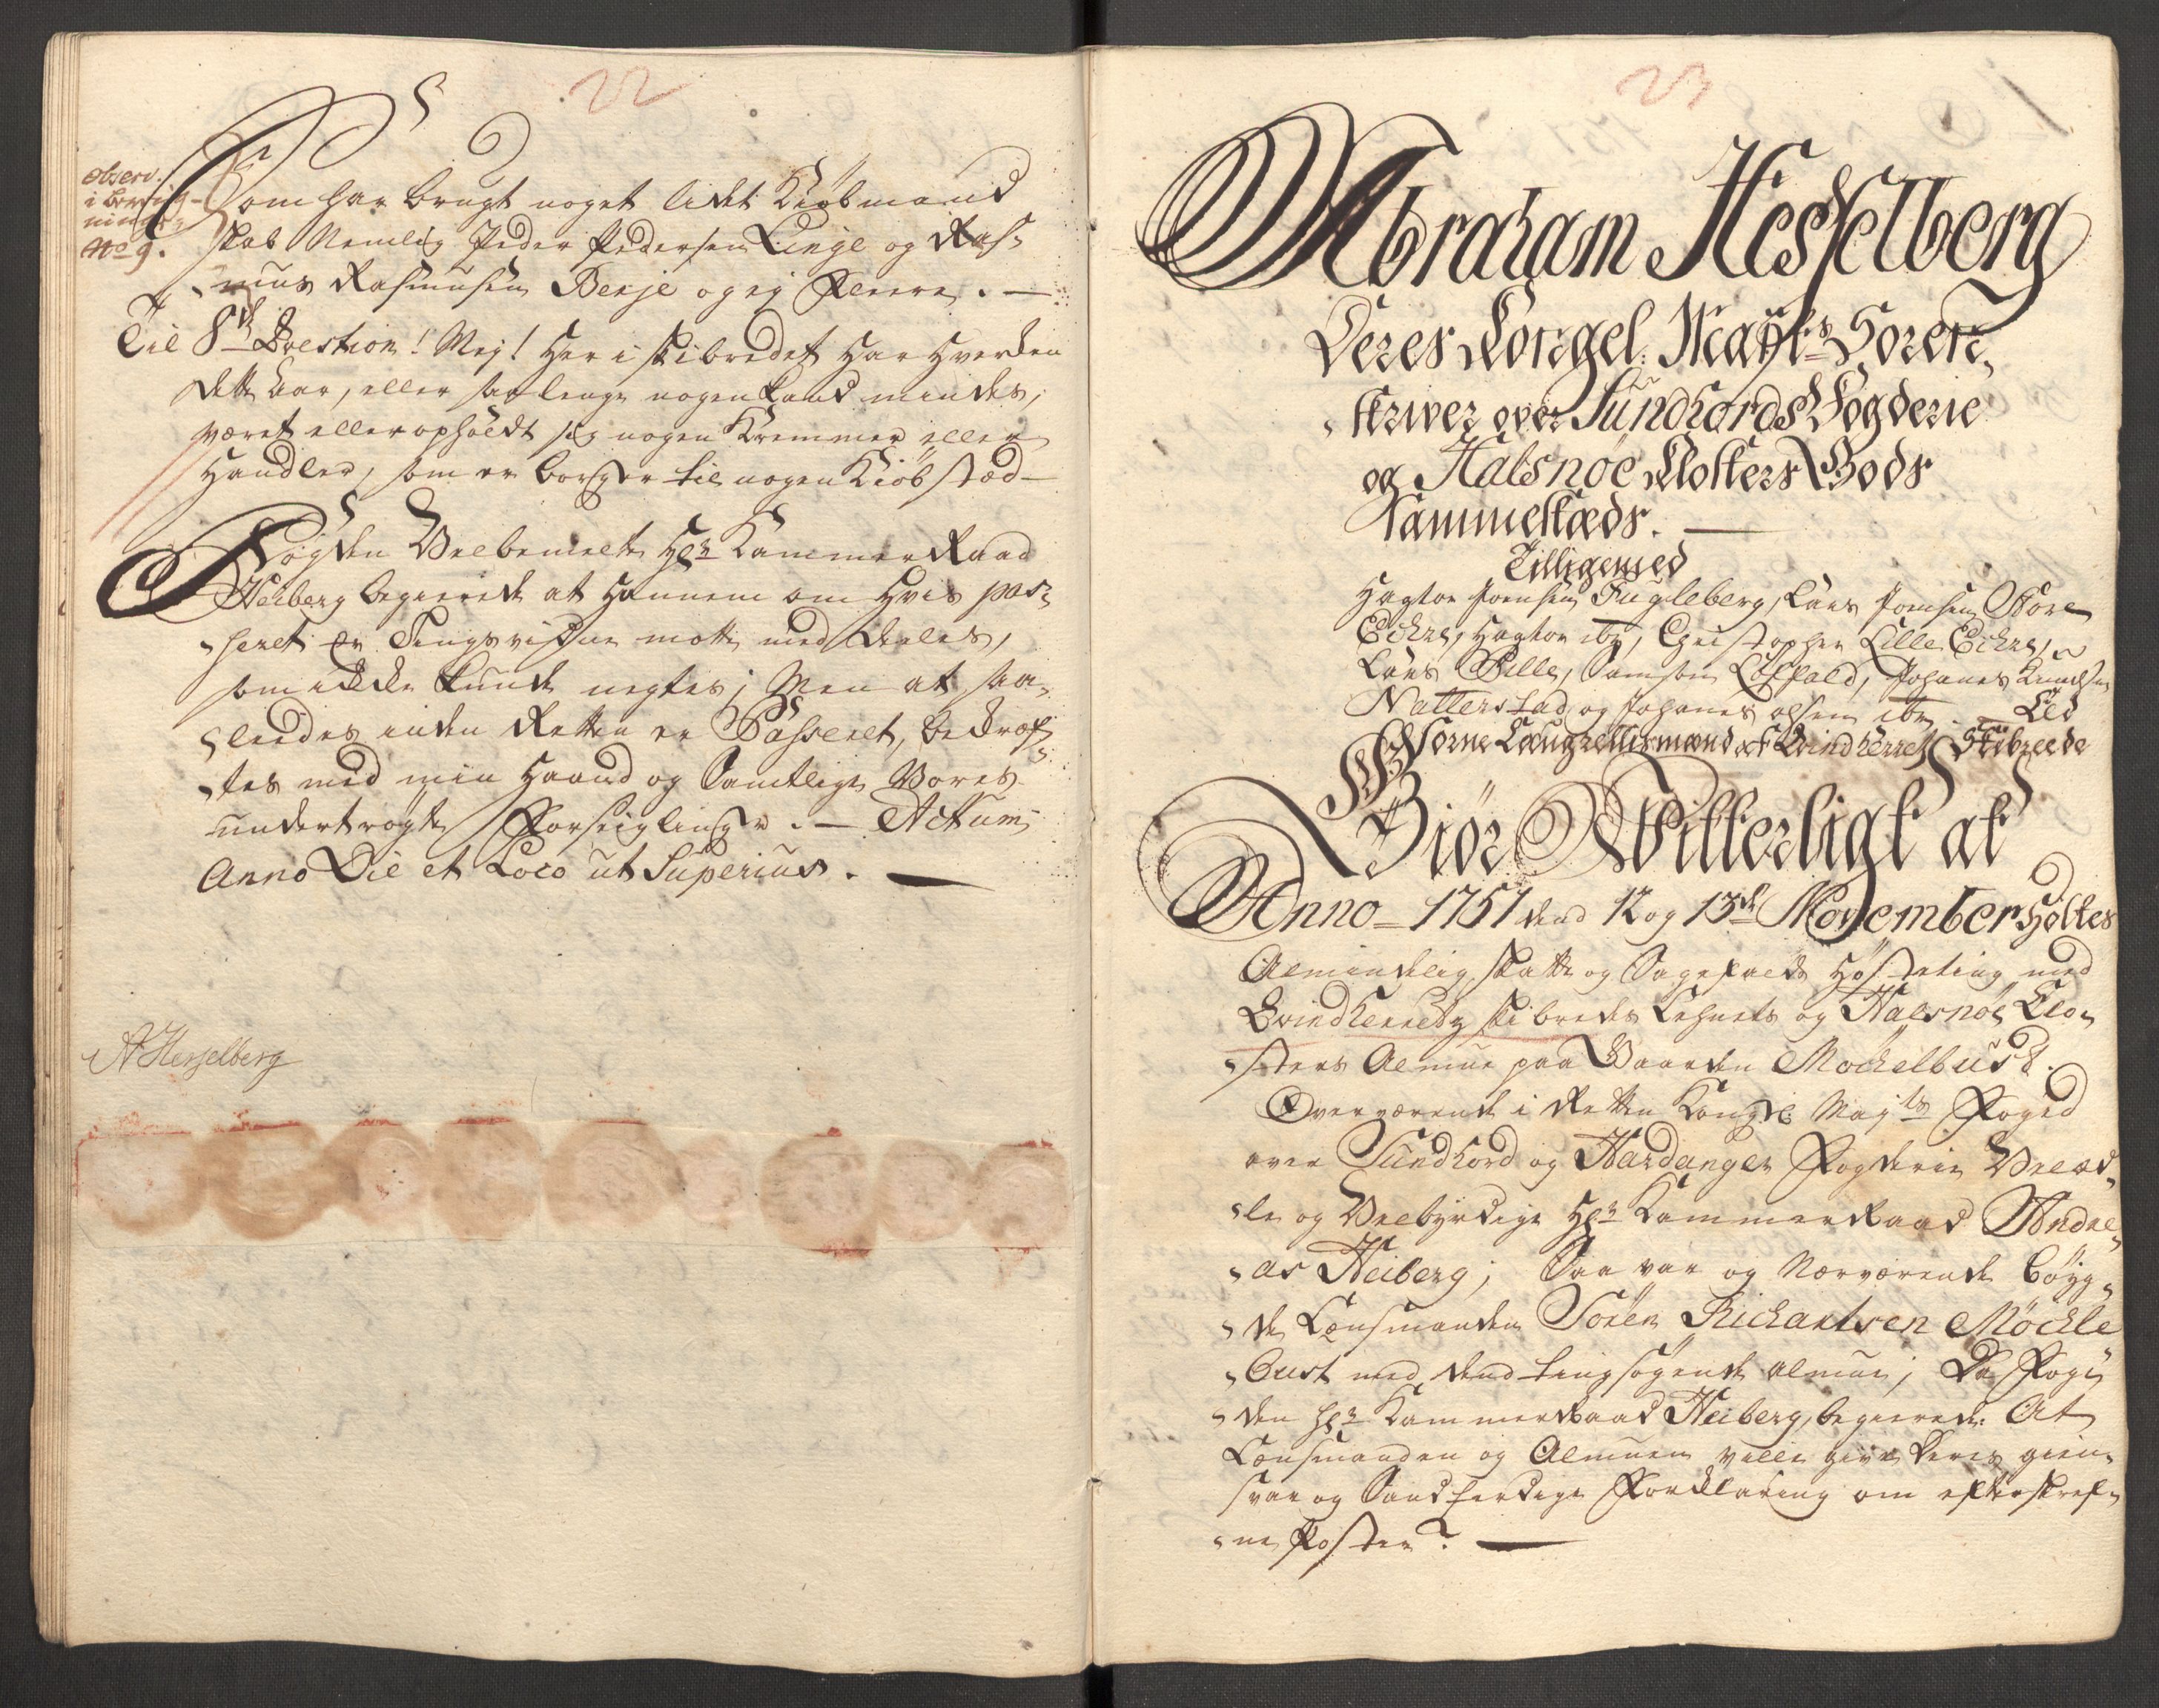 22
observ.
i bereig-
ninger
No 9.
Som har brugt noget lidet Kiøbmand
skab Nemlig Peder Pedersen Linge og Ras-
mus Rasmusen Berje og ej fleere. —
Til 8de Qvestion! Nej! Her i Skibredet har hverken
dette Aar, eller saa lenge nogen kand mindes,
været eller opholdt sig nogen Kremmer eller
Handler, som er borger til nogen Kiøbstæd —
Fogden Velbemelte Hr Kammer Raad
Heiberg begierede at hannem om hvis pas-
seret er Tingsvidne motte meddeeles,
som ikke kunde negtes; Men at saa-
leedes inden Retten er Passeret, bekræf-
tes med min Haand og Samtlige Vores
undertrøgte Forseiglinger. — Actum
Anno Die et Loco ut Superius. —
A Hesselberg
23
Abraham Hesselberg
Deres Kongel: Mayts Soren-
skriver over Sundhords Fogderie
og Halsnøe Klosters Gods
Sammesteds. —
Tilligemed
Hagtor Joensen Fugleberg, Lars Joensen Store
Eichre, Hagtor ibm, Christopher Lille Eichre,
Lars Pille, Samson Løfald, Johanes Knudsen
Natterstad og Johanes olsen ibm. — Eed
Sorne Laugrettismænd af Qvindherret Skibreede
Giør Witterligt at
Anno 1751 dend 12 og 13de November Holtes
Almindelig Skatte og Sagefalds Høsteting med
Qvindherrets Skibredes Lehnets og Halsnøe Clo-
sters Almue paa Gaarden Møchelbust.
Overværende i Retten Kongel Mayts Foged
over Sundhord og Hardanger Fogderie Velæd-
le og Velbyrdige Hr Kammer Raad Andre-
as Heiberg; Saa var og Nerværende Bøyg-
de Lensmanden Søren Richartsen Møchle
bust med dend tingsøgende almue; Da Fog-
den Hr Kammerraad Heiberg, begierede: At
Lensmanden og Almuen ville give deres gien-
svar og Sandferdige Forklaring om efterskref-
ne Poster? —